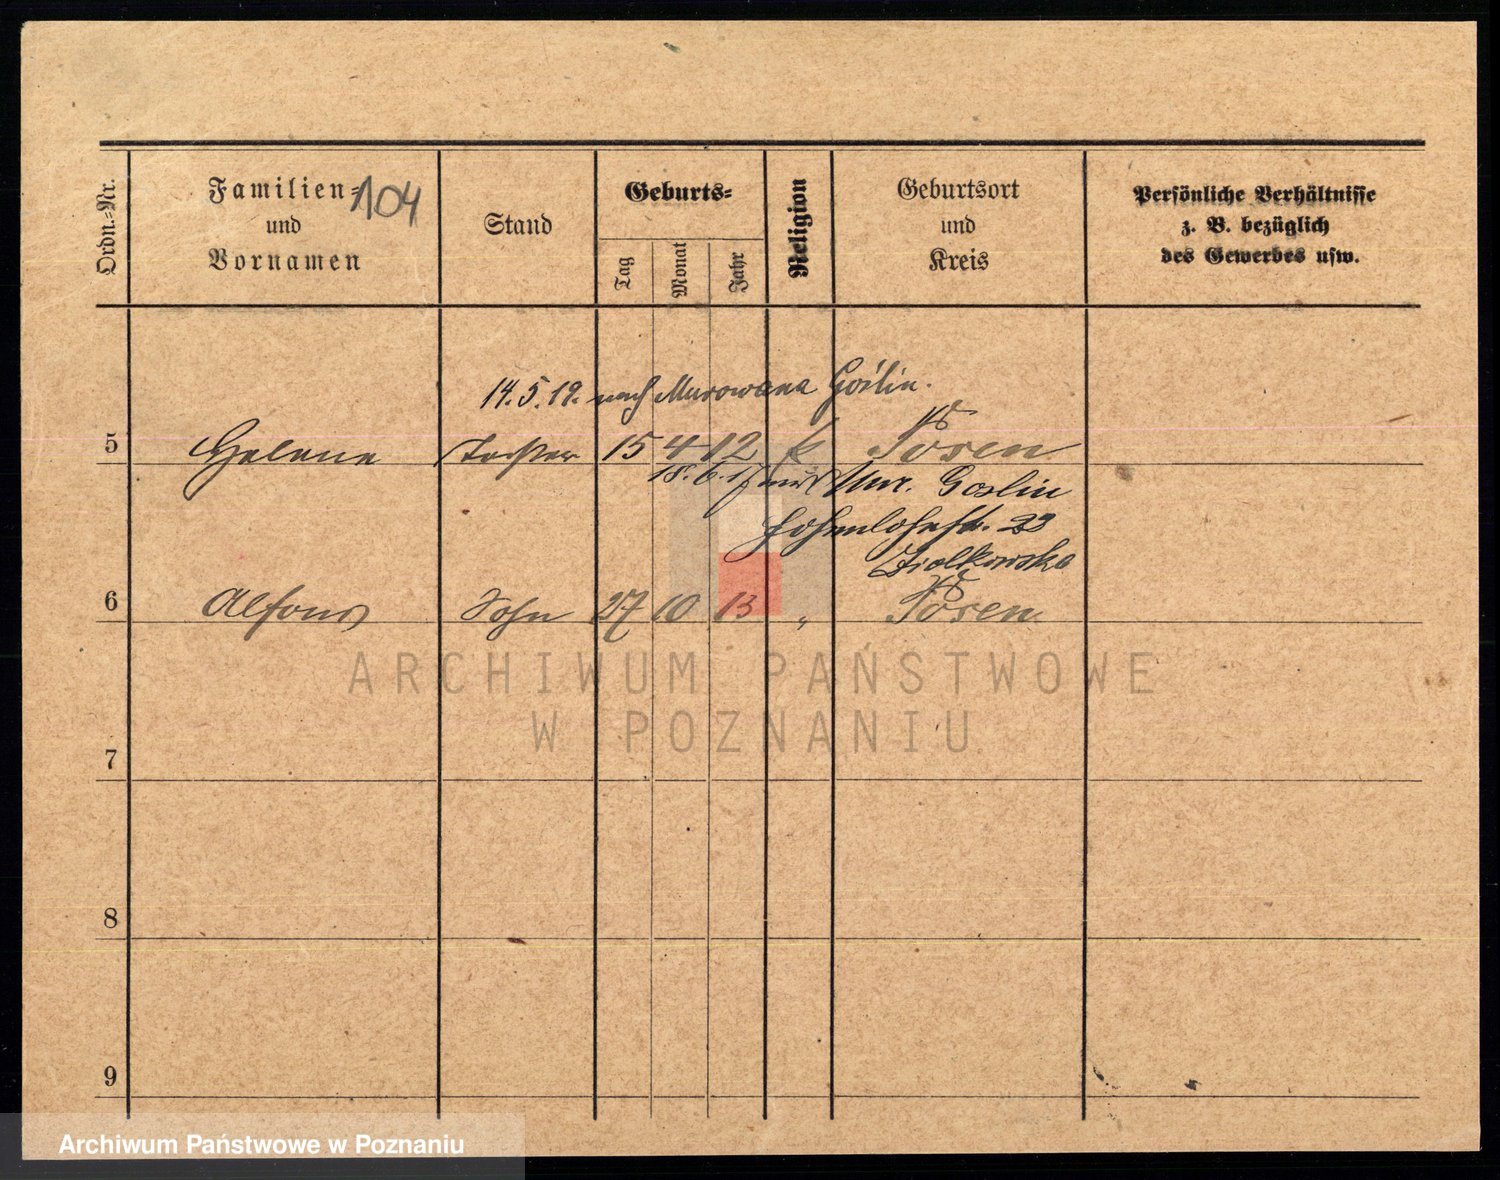 Ordn.-Nr.
Familien-
104
und
Vornamen
Stand
Geburts-
Tag
Monat
Jahr
Religion
Geburtsort
und
Kreis
Persönliche Verhältnisse
z. B. bezüglich
des Gewerbes usw.
14.5.19. nach Murowana Goślin.
5 Helene Tochter 15 4 12 k Posen
18.6.17 aus Mur. Goslin
Hohenlohestr. 22
Ziolkowska
6 Alfons Sohn 27 10 13 " Posen
ARCHIWUM PAŃSTWOWE
W POZNANIU
7
8
9
Archiwum Państwowe w Poznaniu